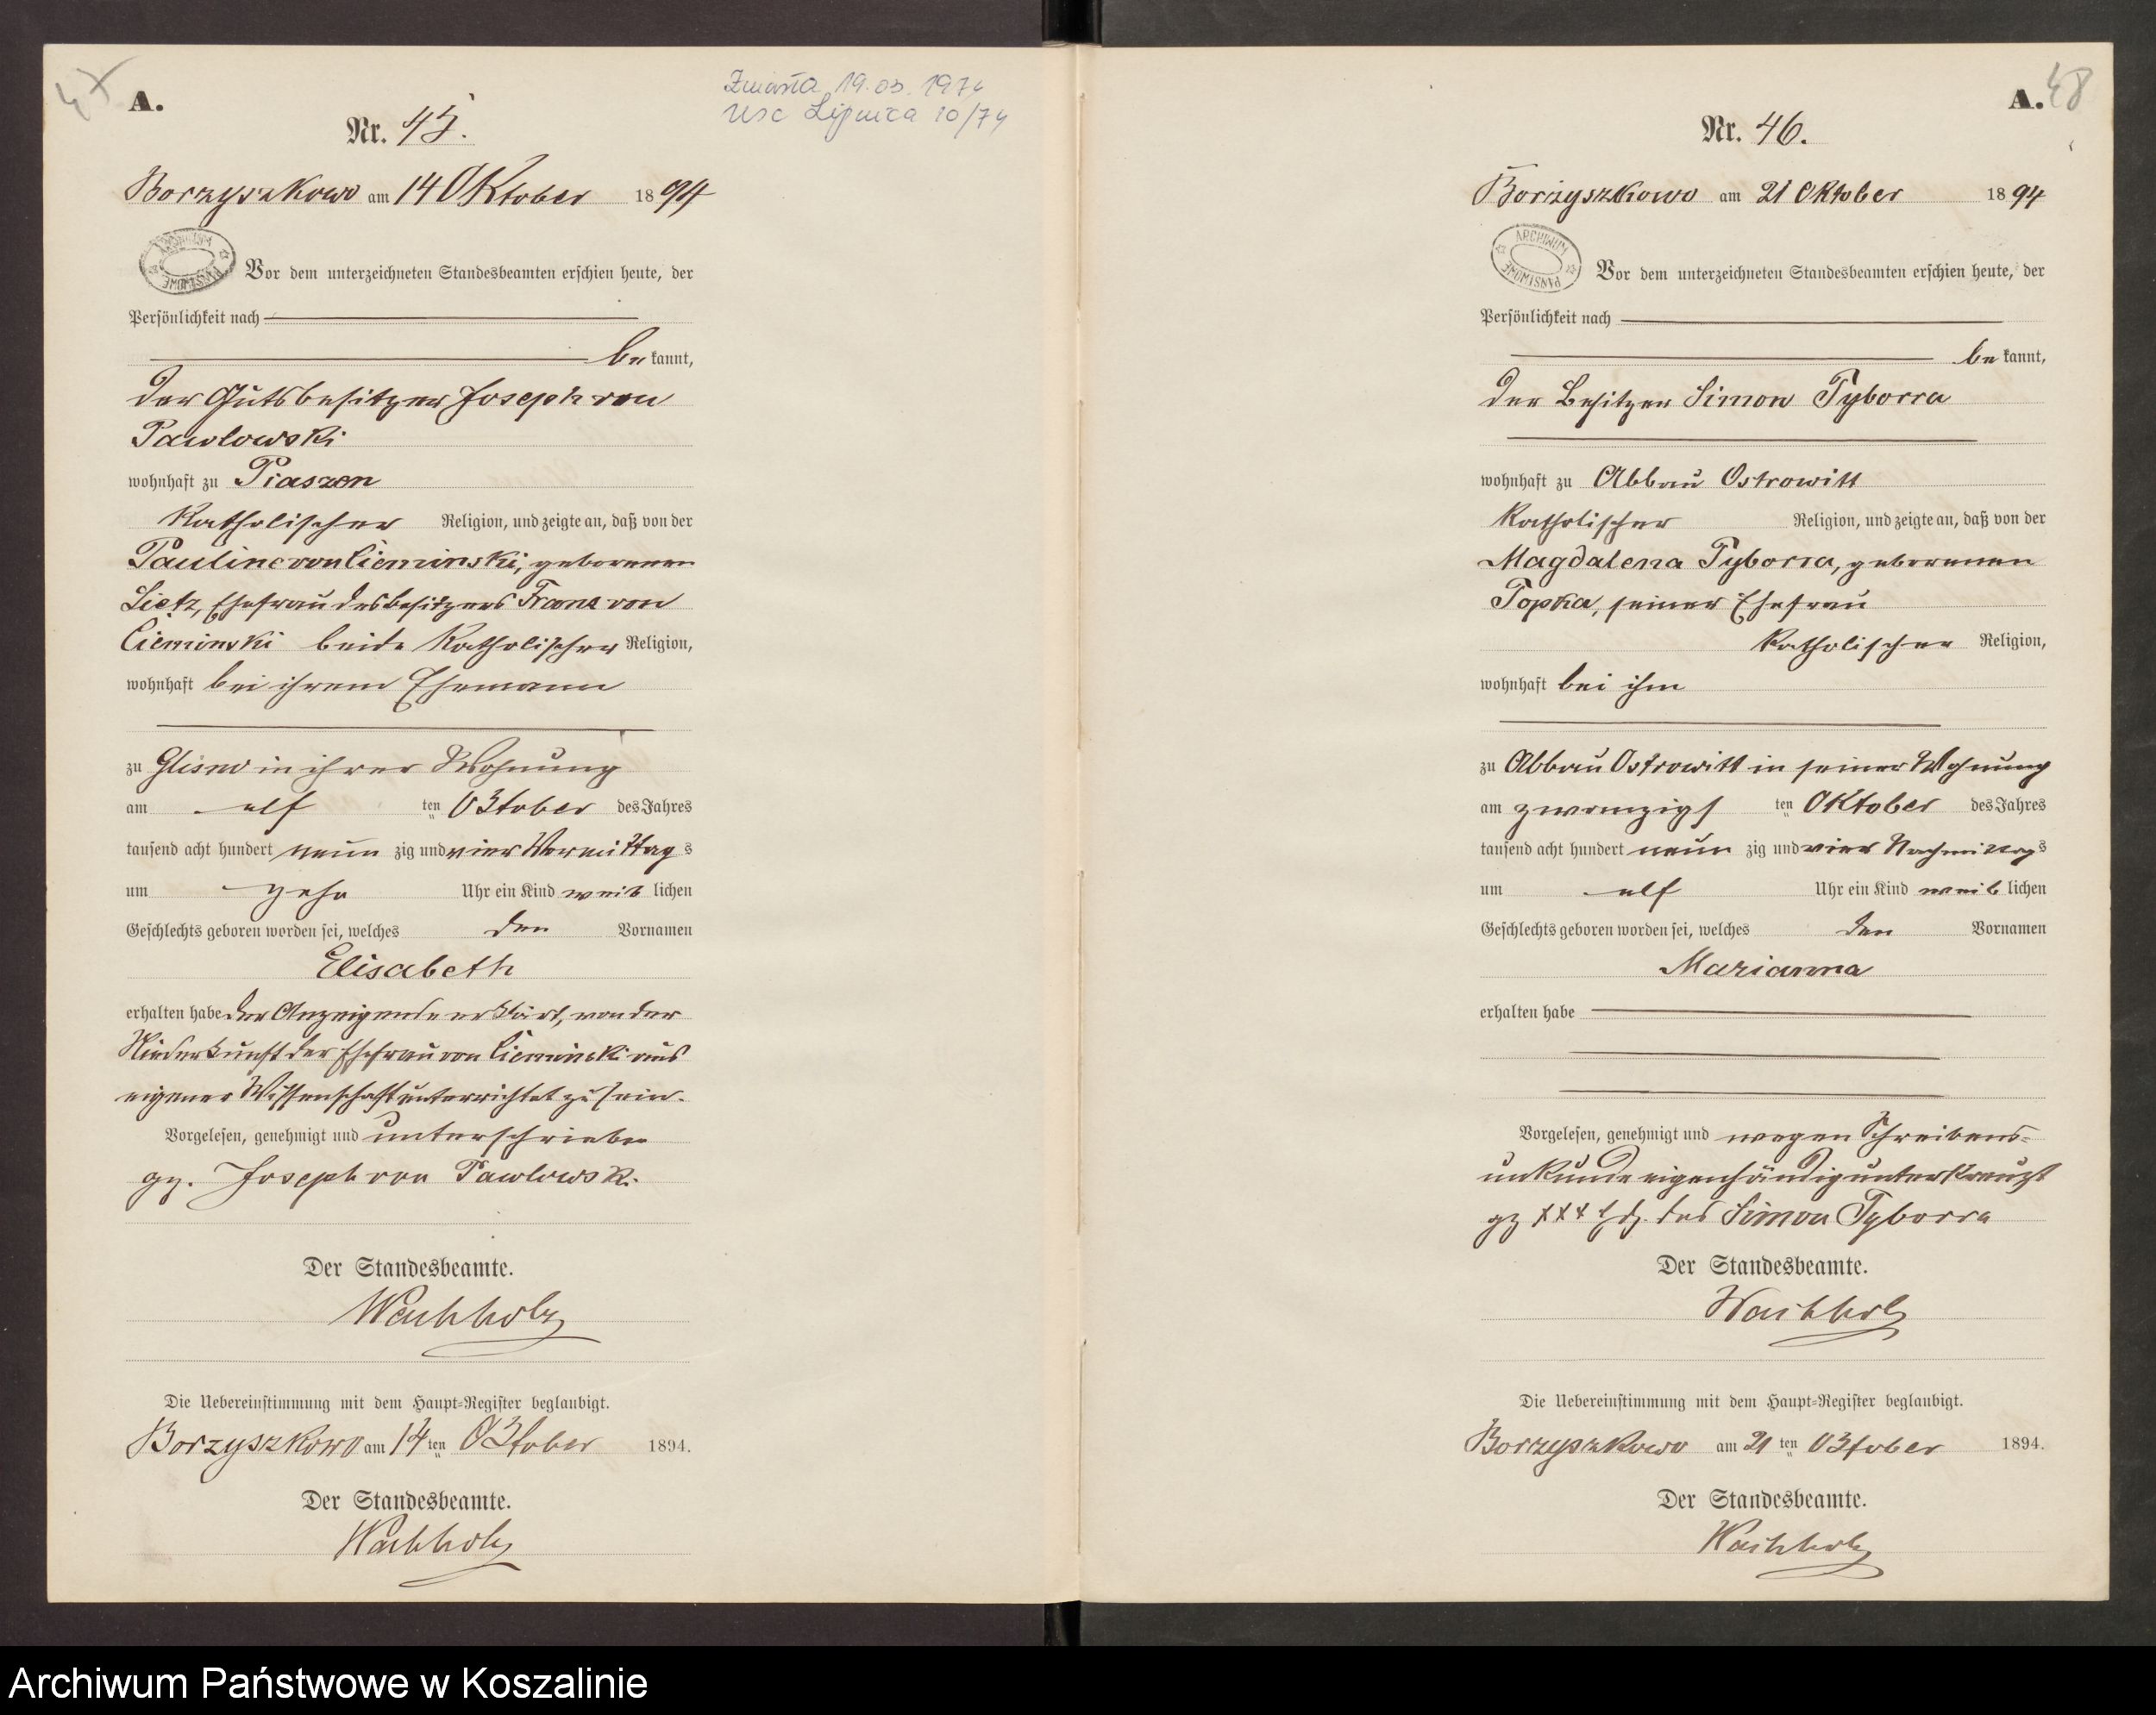 47
A.
Zmarła 19.03.1974
USC Lipnica 10/74
Nr. 45.
Borzyszkowo am 14 Oktober 1894
ARCHIWUM PAŃSTWOWE
Vor dem unterzeichneten Standesbeamten erschien heute, der
Persönlichkeit nach
be kannt,
der Gutsbesitzer Joseph von
Pawlowski
wohnhaft zu Piaszen
katholischer Religion, und zeigte an, daß von der
Pauline von Cieminski, geborenen
Lietz, Ehefrau des Besitzers Franz von
Cieminski beide katholischer Religion,
wohnhaft bei ihrem Ehemann
zu Glisno in ihrer Wohnung
am elf ten Oktober des Jahres
tausend acht hundert neun zig und vier Vormittag s
um zehn Uhr ein Kind weib lichen
Geschlechts geboren worden sei, welches den Vornamen
Elisabeth
erhalten habe der Anzeigende erklärt, von der
Niederkunft der Ehefrau von Cieminski aus
eigener Wissenschaft unterrichtet zu sein.
Vorgelesen, genehmigt und unterschrieben
gz. Joseph von Pawlowski
Der Standesbeamte.
Wachholz
Die Uebereinstimmung mit dem Haupt-Register beglaubigt.
Borzyszkowo am 14 ten Oktober 1894.
Der Standesbeamte.
Wachholz
A. 48
Nr. 46.
Borzyszkowo am 21 Oktober 1894
ARCHIWUM PAŃSTWOWE
Vor dem unterzeichneten Standesbeamten erschien heute, der
Persönlichkeit nach
be kannt,
der Besitzer Simon Tyborra
wohnhaft zu Abbau Ostrowitt
katholischer Religion, und zeigte an, daß von der
Magdalena Tyborra, geborenen
Topka, seiner Ehefrau
katholischer Religion,
wohnhaft bei ihm
zu Abbau Ostrowitt in seiner Wohnung
am zwanzigs ten Oktober des Jahres
tausend acht hundert neun zig und vier Nachmittags
um elf Uhr ein Kind weib lichen
Geschlechts geboren worden sei, welches den Vornamen
Marianna
erhalten habe
Vorgelesen, genehmigt und wegen Schreibens-
unkunde eigenhändig unterkreuzt
gz xxx Hdz. des Simon Tyborra
Der Standesbeamte.
Wachholz
Die Uebereinstimmung mit dem Haupt-Register beglaubigt.
Borzyszkowo am 21 ten Oktober 1894.
Der Standesbeamte.
Wachholz
Archiwum Państwowe w Koszalinie